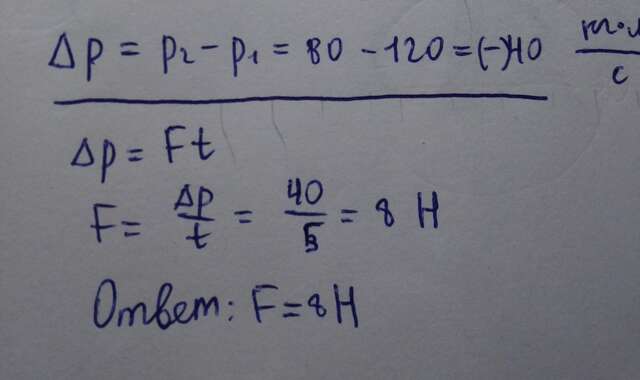 Δp = p₂ - p₁ = 80 - 120 = (-)40 кг·м/с
Δp = Ft
F = Δp/t = 40/5 = 8 Н
Ответ: F = 8Н